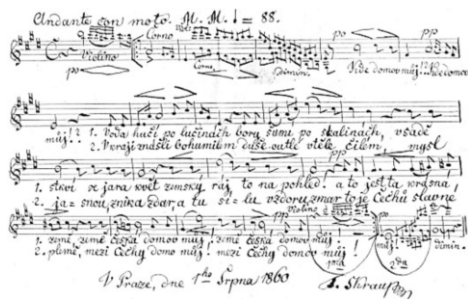 Andante con moto. M. M. ♩ = 88.
Violino Corno Viol. po pp
po Corno Dimin. Kde domov můj! Kde domov
můj!? 1. Voda hučí po lučinách bory šumí po skalinách, v sadě
2. V kraji znášli bohumilém duše outlé v těle čilém, mysl
1. skví se jara květ zemský ráj to na pohled. a to jest ta krásná,
2. ja=snou, znik a zdar a tu sí=lu vzdoru zmar to je Čechů slavné
pp Violino pp
1. země, země česká domov můj! země česká domov můj! můj!
2. plémě, mezi Čechy domov můj! mezi Čechy domov můj! dimin.
1ma 2da
V Praze, dne 1ho Srpna 1860 Skraup